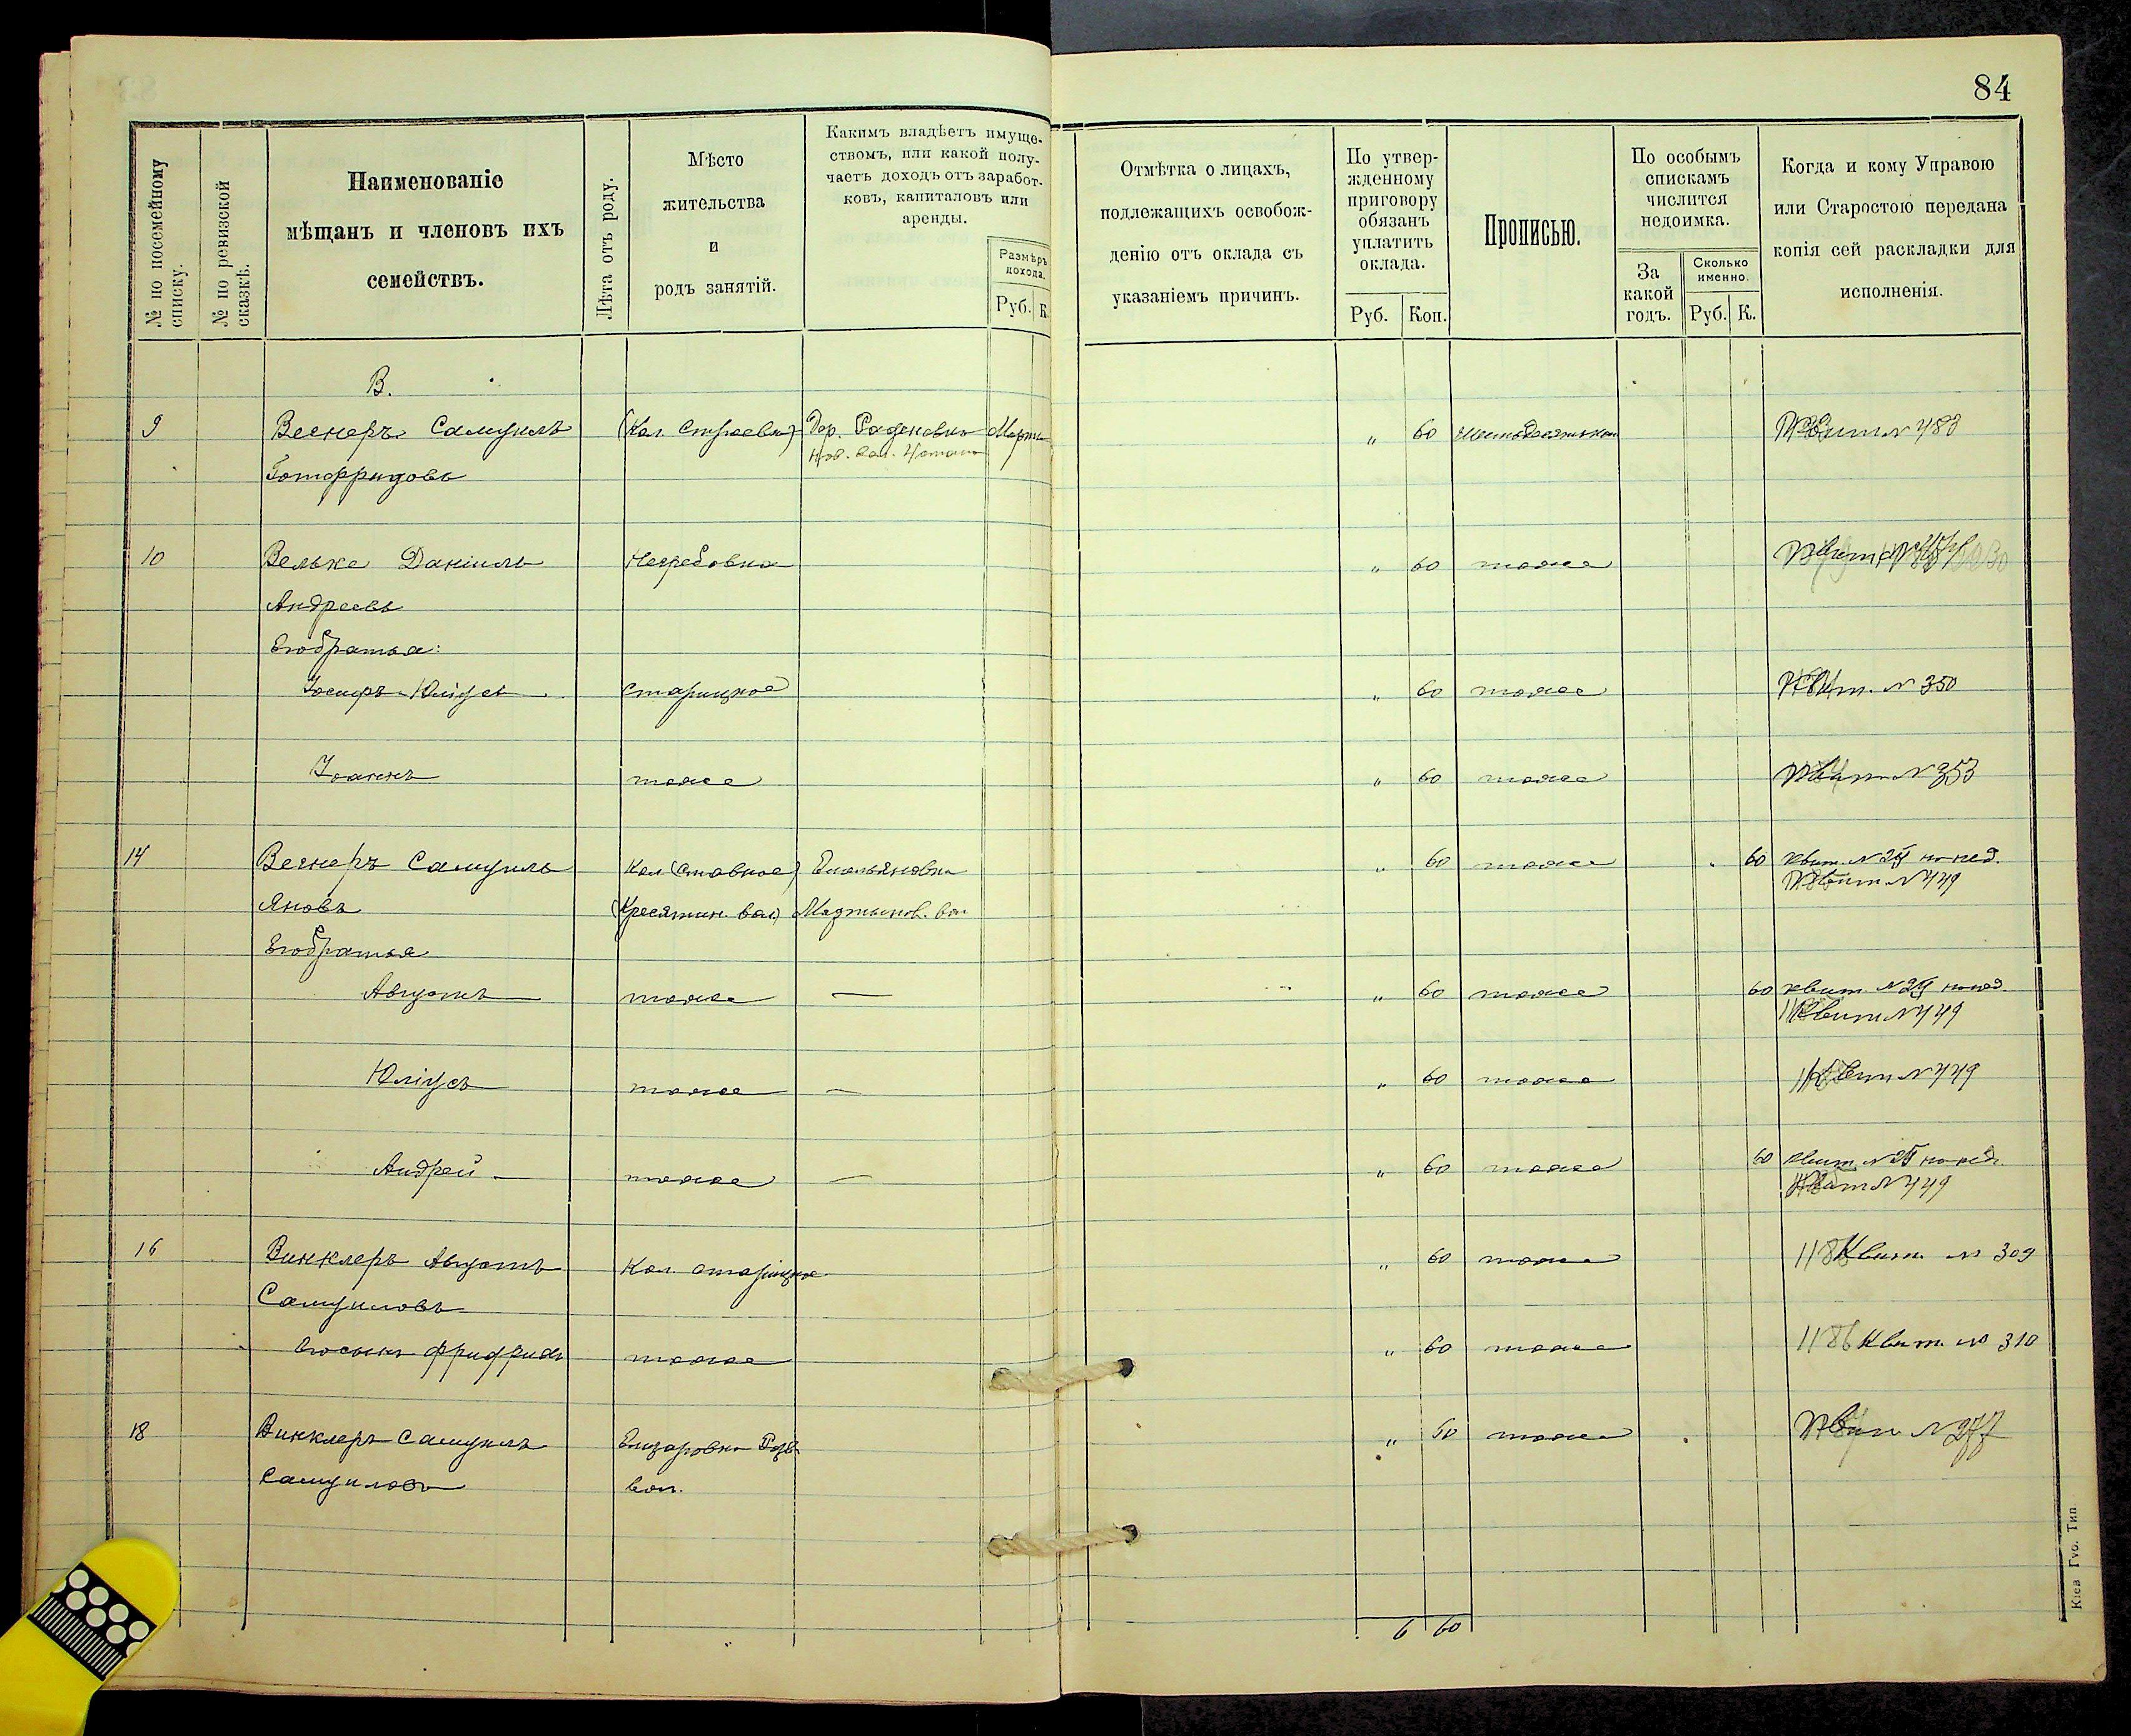 84
№ по посемейному списку.
№ по ревизской сказкѣ.
Наименованіе
мѣщанъ и членовъ ихъ
семействъ.
Лѣта отъ роду.
Мѣсто
жительства
и
родъ занятій.
Какимъ владѣетъ имуще-
ствомъ, или какой полу-
чаетъ доходъ отъ заработ-
ковъ, капиталовъ или
аренды.
Размѣръ
дохода.
Руб. К.
Отмѣтка о лицахъ,
подлежащихъ освобож-
денію отъ оклада съ
указаніемъ причинъ.
По утвер-
жденному
приговору
обязанъ
уплатить
оклада.
Руб. Коп.
Прописью.
По особымъ
спискамъ
числится
недоимка.
За
какой
годъ.
Сколько
именно.
Руб. К.
Когда и кому Управою
или Старостою передана
копія сей раскладки для
исполненія.
В.
9 Вегнеръ Самуилъ (Кол. Строевка) " 60 Шестьдесятъ коп Квит N 483
Готфридовъ
10 Вельке Даніилъ Негребовка " 60 тоже
Андреевъ
Его братья:
Іосифъ-Юліусъ Старицкое " 60 тоже Квит. N 350
Іоаннъ тоже " 60 тоже Квит N 353
14 Вегнеръ Самуилъ Кол (Ставное) Емельяновка " 60 тоже 60 квит. N 24 по нед.
Яновъ Мартынов. вол Квит N 449
Его братья
Августъ тоже — " 60 тоже 60 квит. N 24 по нед.
Квит N 449
Юліусъ тоже — " 60 тоже Квит N 449
Андрей тоже — " 60 тоже 60 квит. N по нед.
Квит N 449
16 Винклеръ Августъ Кол. Старицкое " 60 тоже 1186 Квит. № 309
Самуиловъ
Его сынъ Фридрихъ тоже " 60 тоже 1186 Квит. № 310
18 Винклеръ Самуилъ Елизаровка " 60 тоже Квит N 277
Самуиловъ вол.
6 60
Кіев Губ. Тип